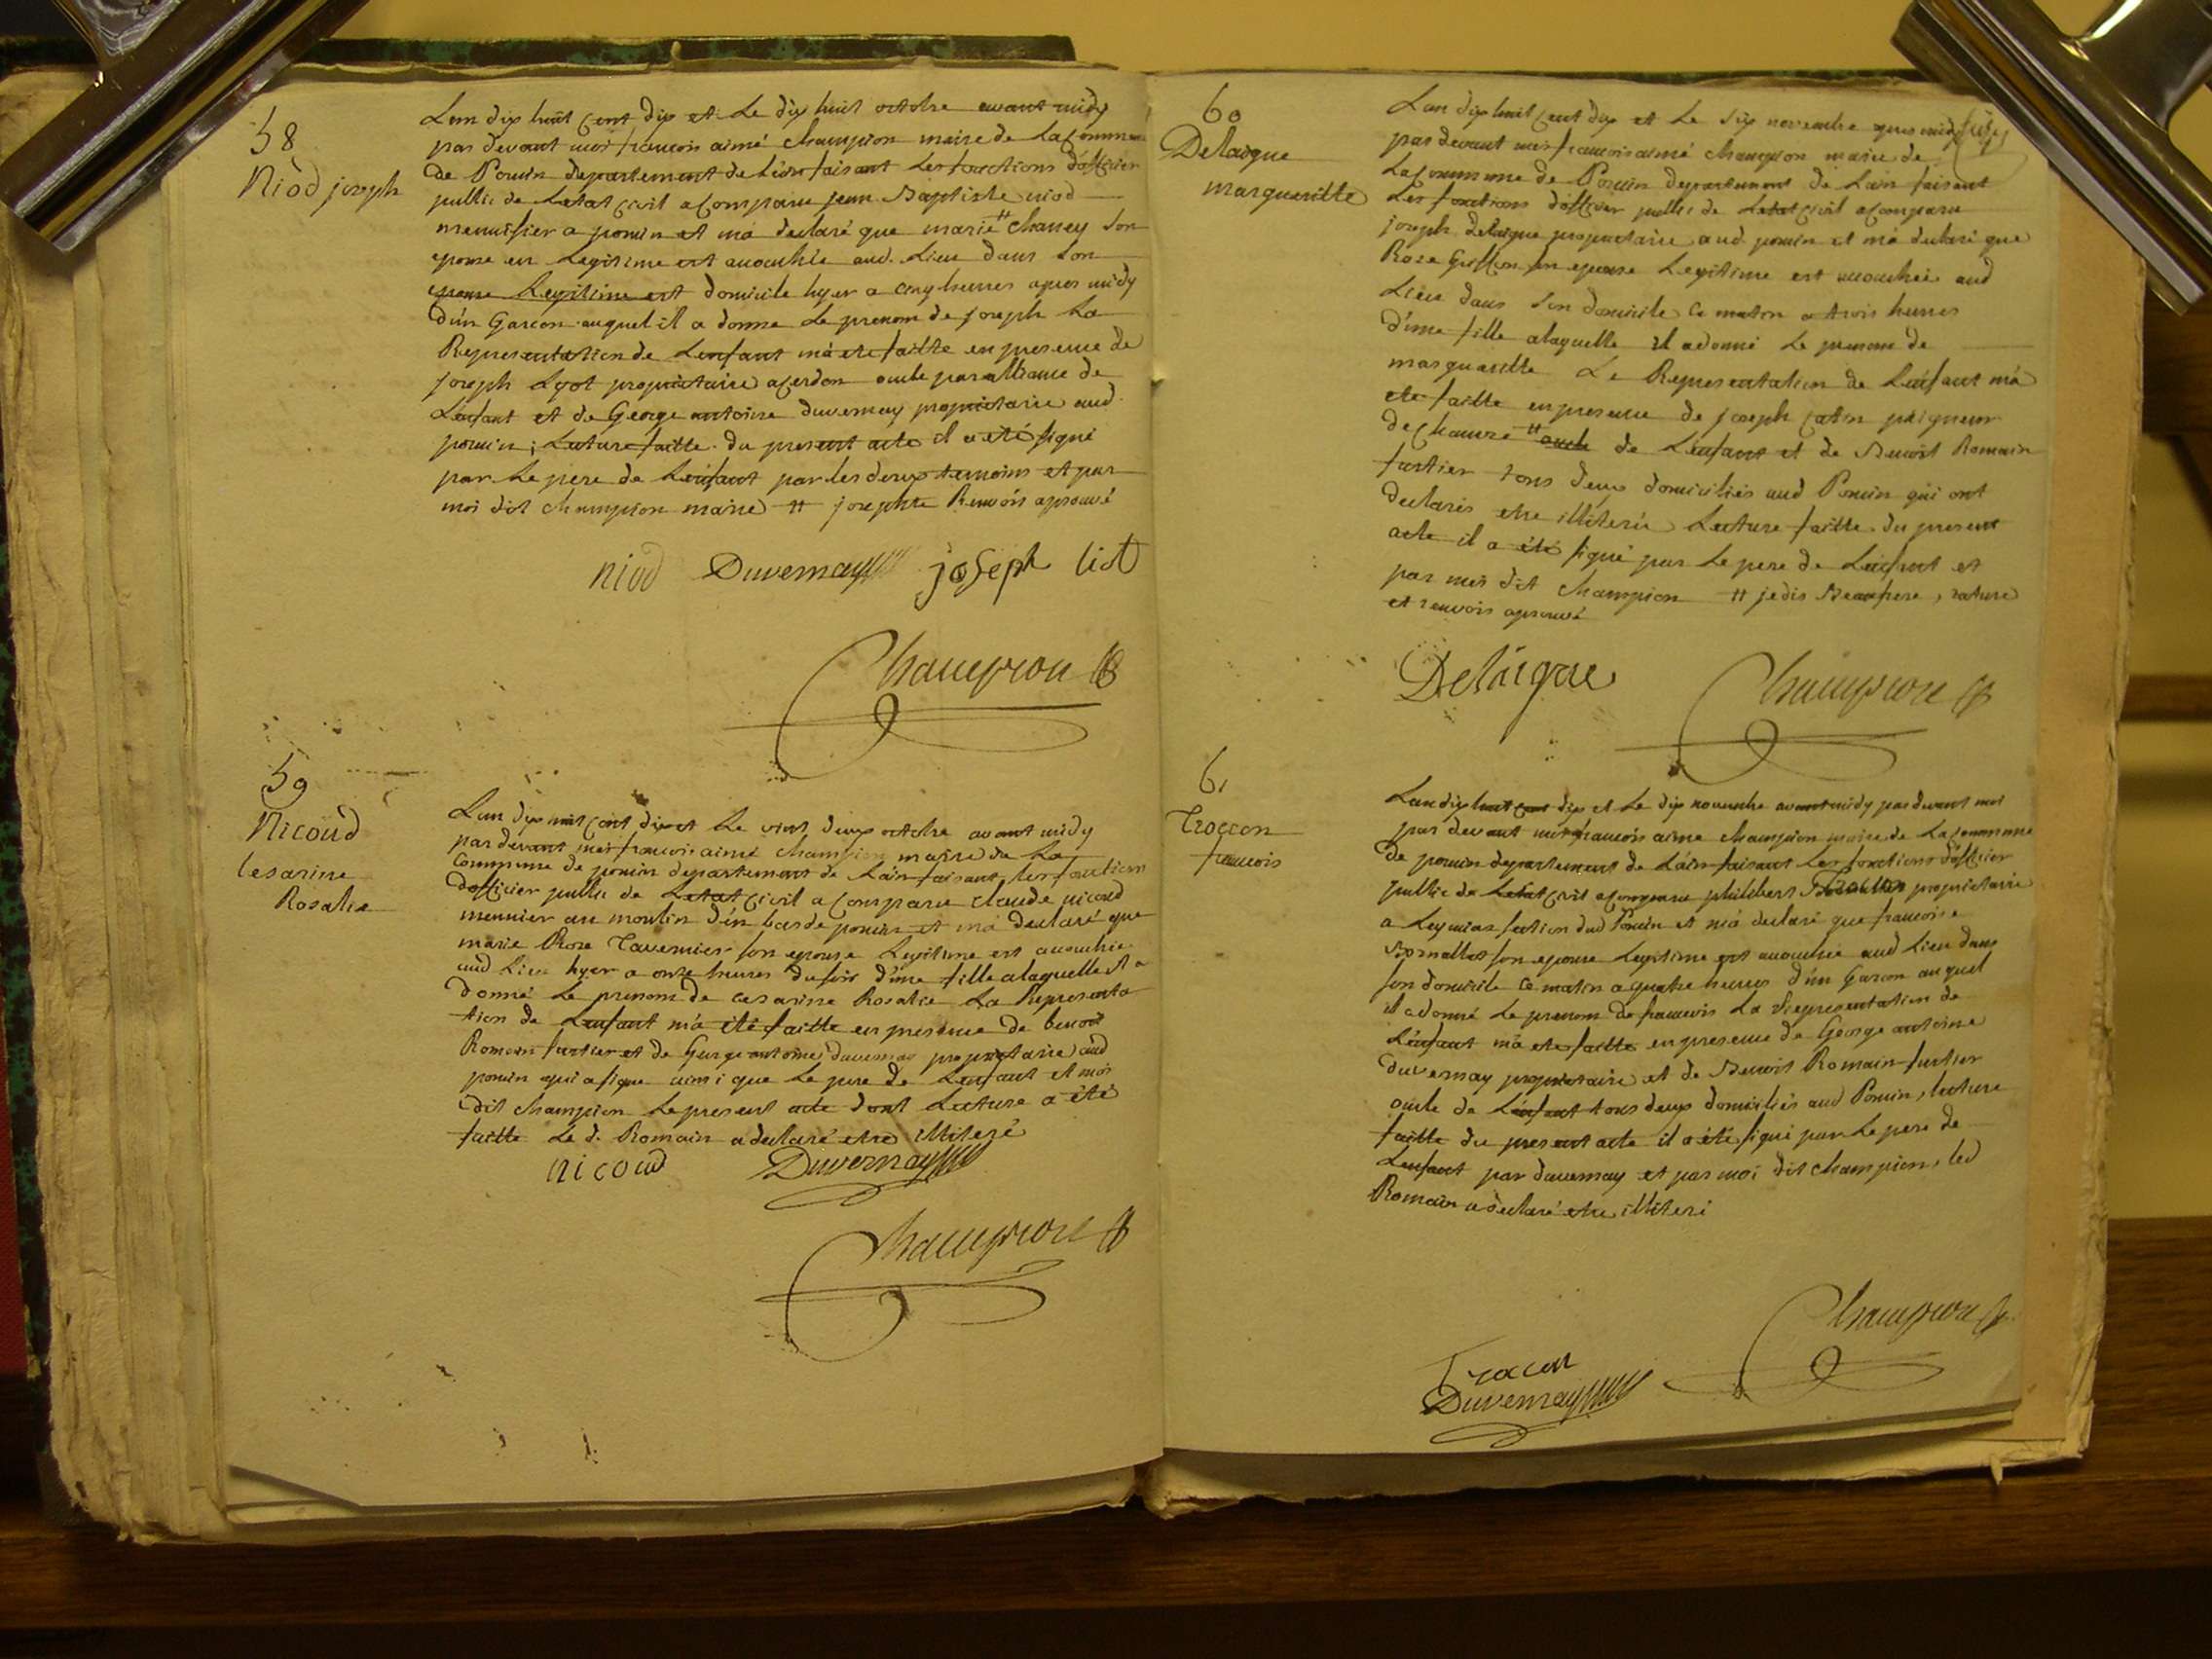 58
Niod joseph
Lan dix huit cent dix et Le dix huit octobre avant midy
par devant moi francois aimé champion maire de La commune
de Poncin departement de L'ain faisant Les fonctions d'officier
public de Letat civil a comparu jean Baptiste niod
menuisier a poncin et m'a declaré que marie # chaney son
epouse en Legitime est accouchée aud. Lieu dans son
epouse Legitime est domicile hyer a cinq heures apres midy
d'un Garcon auquel il a donné Le prenom de joseph La
Representation de Lenfant m'a ete faitte en presence de
joseph Lyot propriétaire a cerdon oncle par alliance de
L'enfant et de George antoine duvernay propriétaire aud.
poncin ; Lecture faitte du present acte il a été signé
par Le pere de L'enfant par les deux temoins et par
moi dit champion maire # josephte Renvois aprouvé
niod Duvernay joseph liot
Champion
59
Nicoud
Cesarine
Rosalie
Lan dix huit cent dix et Le vint deux octobre avant midy
par devant moi francois aimé champion maire de La
Commune de poncin departement de Lain faisant les fonctions
d'officier public de Letat civil a comparu claude nicoud
meunier au moulin d'en bas de poncin et m'a declaré que
marie Rose Tavernier son epouse Legitime est accouchée
aud Lieu hyer a onze heures du soir d'une fille a laquelle il a
donné Le prenom de cesarine Rosalie La Representa
tion de Lenfant m'a été faitte en presence de benoit
Romain fustier et de George antoine duvernay propriétaire aud
poncin qui a signé ainsi que Le pere de Lenfant et moi
dit champion Le present acte dont Lecture a été
faitte Le d. Romain a declaré etre illiteré
nicoud Duvernay
Champion
60
Delaigue
margueritte
Lan dix huit cent dix et Le six novembre apres midy
par devant moi francois aimé champion maire de
La Commune de Poncin departement de Lain faisant
Les fonctions d'officier public de Letat civil a comparu
joseph delaigue propriétaire aud. poncin et m'a declaré que
Roze Griffon son epouse Legitime est accouchée aud
Lieu dans son domicile ce matin a trois heures
d'une fille a laquelle il a donné Le prenom de
margueritte Le Representation de Lenfant m'a
ete faitte en presence de joseph catin peigneur
de chanvre # oncle de L'enfant et de Benoit Romain
fustier tous deux domiciliés aud Poncin qui ont
declarés etre illiterés Lecture faitte du present
acte il a été signé par Le pere de L'enfant et
par moi dit champion # je dis Beaupere, rature
et renvois aprouvé
Delaigue Champion
61
Troccon
francois
Lan dix huit cent dix et Le dix novembre avant midy par devant moi
par devant moi francois aimé champion maire de La commune
de poncin departement de L'ain faisant Les fonctions d'officier
public de Letat civil a comparu philibert Troccon propriétaire
a Leymiat section dud Poncin et m'a declaré que francoise
son epouse Legitime est accouchée aud Lieu dans
son domicile ce matin a quatre heures d'un Garcon auquel
il a donné Le prenom de francois La Representation de
L'enfant m'a ete faitte en presence de George antoine
duvernay propriétaire et de Benoit Romain fustier
oncle de L'enfant tous deux domiciliés aud Poncin, lecture
faitte du present acte il a été signé par Le pere de
Lenfant par duvernay et par moi dit champion, led
Romain a declaré etre illiteré
Champion
Trocon
Duvernay